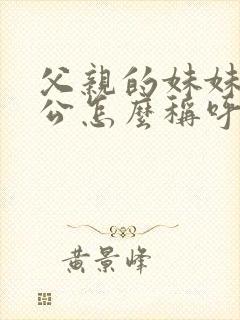 父親的妹妹
公怎麼稱呼
黃景峰